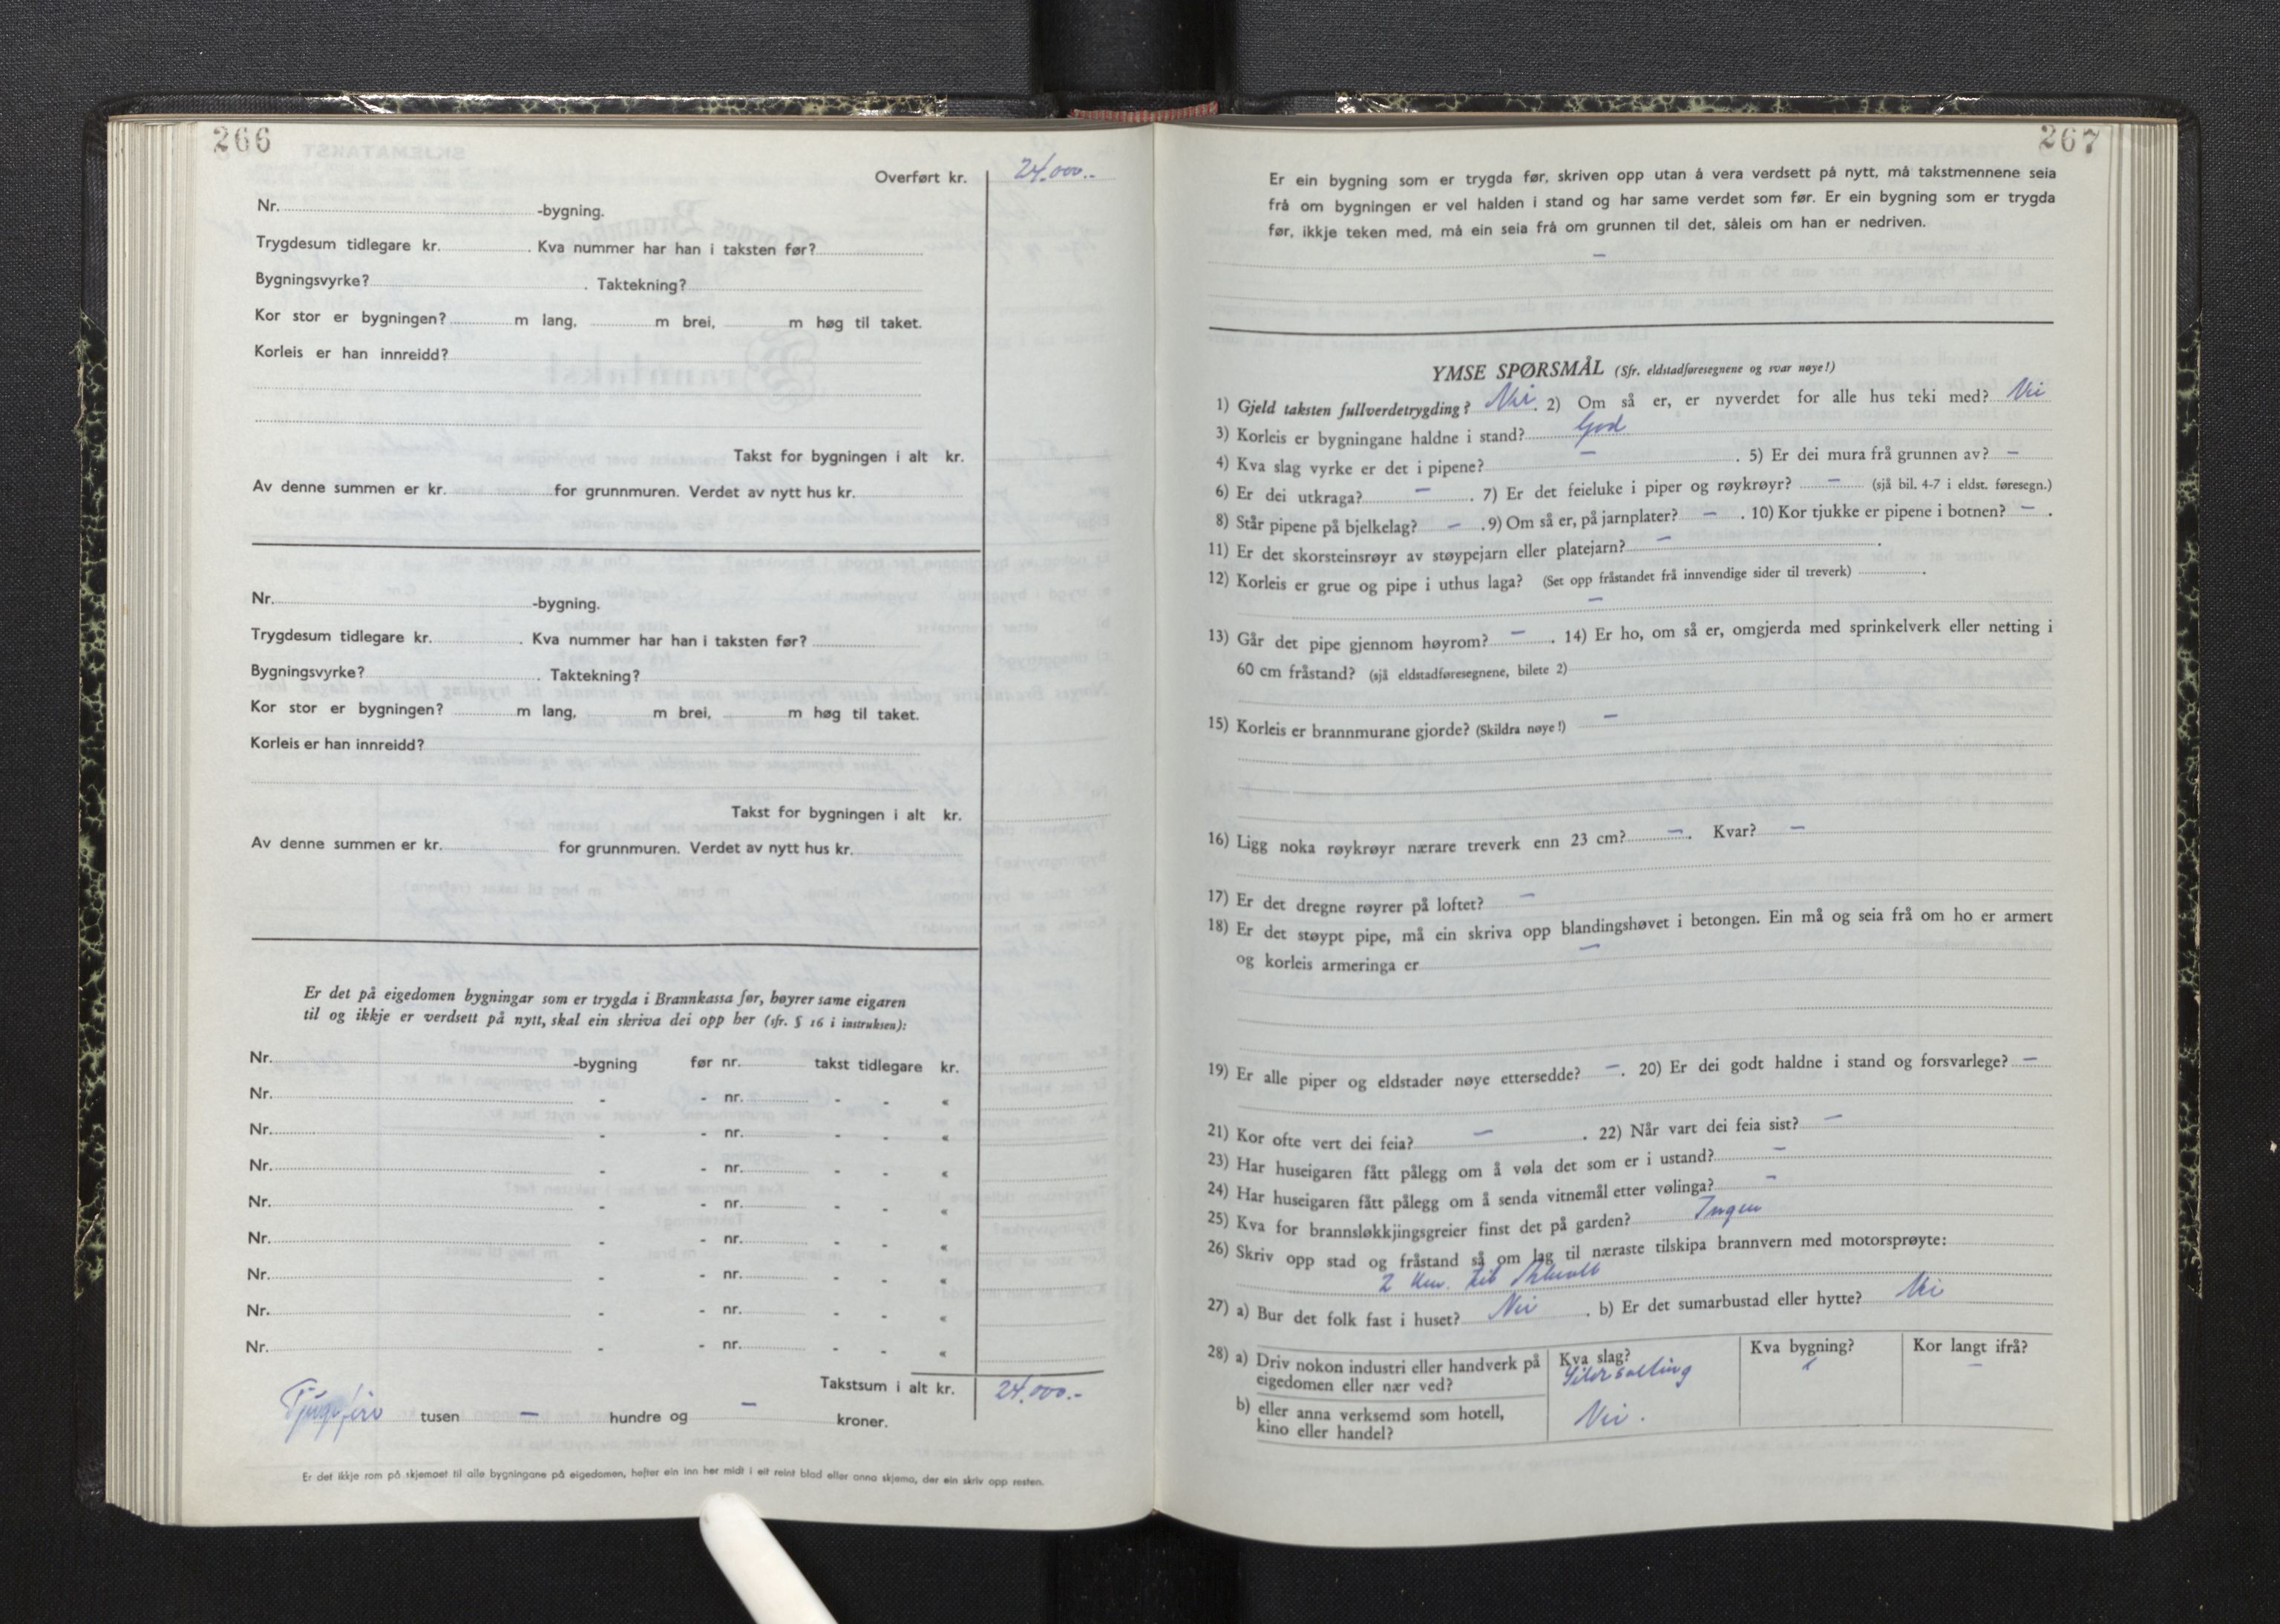 266
Overført kr. 24.000.-
Nr. -bygning.
Trygdesum tidlegare kr. . Kva nummer har han i taksten før?
Bygningsvyrke? . Taktekning?
Kor stor er bygningen? m lang, m brei, m høg til taket.
Korleis er han innreidd?
Takst for bygningen i alt kr.
Av denne summen er kr. for grunnmuren. Verdet av nytt hus kr.
Nr. -bygning.
Trygdesum tidlegare kr. . Kva nummer har han i taksten før?
Bygningsvyrke? . Taktekning?
Kor stor er bygningen? m lang, m brei, m høg til taket.
Korleis er han innreidd?
Takst for bygningen i alt kr.
Av denne summen er kr. for grunnmuren. Verdet av nytt hus kr.
Er det på eigedomen bygningar som er trygda i Brannkassa før, høyrer same eigaren
til og ikkje er verdsett på nytt, skal ein skriva dei opp her (sfr. § 16 i instruksen):
Nr. -bygning før nr. takst tidlegare kr.
Nr. - - nr. - - «
Nr. - - nr. - - «
Nr. - - nr. - - «
Nr. - - nr. - - «
Nr. - - nr. - - «
Nr. - - nr. - - «
Nr. - - nr. - - «
Nr. - - nr. - - «
Takstsum i alt kr. 24.000.-
Tjugefire tusen – hundre og – kroner.
Er det ikkje rom på skjemaet til alle bygningane på eigedomen, hefter ein inn her midt i eit reint blad eller anna skjema, der ein skriv opp resten.
267
Er ein bygning som er trygda før, skriven opp utan å vera verdsett på nytt, må takstmennene seia
frå om bygningen er vel halden i stand og har same verdet som før. Er ein bygning som er trygda
før, ikkje teken med, må ein seia frå om grunnen til det, såleis om han er nedriven.
–
YMSE SPØRSMÅL (Sfr. eldstadføresegnene og svar nøye!)
1) Gjeld taksten fullverdetrygding? Nei. 2) Om så er, er nyverdet for alle hus teki med? Nei
3) Korleis er bygningane haldne i stand? God
4) Kva slag vyrke er det i pipene? – . 5) Er dei mura frå grunnen av? –
6) Er dei utkraga? – . 7) Er det feieluke i piper og røykrøyr? – (sjå bil. 4-7 i eldst. føresegn.)
8) Står pipene på bjelkelag? – . 9) Om så er, på jarnplater? – . 10) Kor tjukke er pipene i botnen? – .
11) Er det skorsteinsrøyr av støypejarn eller platejarn? – .
12) Korleis er grue og pipe i uthus laga? (Set opp fråstandet frå innvendige sider til treverk) .
–
13) Går det pipe gjennom høyrom? – . 14) Er ho, om så er, omgjerda med sprinkelverk eller netting i
60 cm fråstand? (sjå eldstadføresegnene, bilete 2)
15) Korleis er brannmurane gjorde? (Skildra nøye!) –
16) Ligg noka røykrøyr nærare treverk enn 23 cm? – . Kvar? –
17) Er det dregne røyrer på loftet? –
18) Er det støypt pipe, må ein skriva opp blandingshøvet i betongen. Ein må og seia frå om ho er armert
og korleis armeringa er –
19) Er alle piper og eldstader nøye ettersedde? – . 20) Er dei godt haldne i stand og forsvarlege? –
21) Kor ofte vert dei feia? – . 22) Når vart dei feia sist? –
23) Har huseigaren fått pålegg om å vøla det som er i ustand? –
24) Har huseigaren fått pålegg om å senda vitnemål etter vølinga? –
25) Kva for brannsløkkjingsgreier finst det på garden? Ingen
26) Skriv opp stad og fråstand så om lag til næraste tilskipa brannvern med motorsprøyte:
2 km. til
27) a) Bur det folk fast i huset? Nei . b) Er det sumarbustad eller hytte? Nei
28) a) Driv nokon industri eller handverk på
eigedomen eller nær ved?
Kva slag?
Kva bygning?
Kor langt ifrå?
–
b) eller anna verksemd som hotell,
kino eller handel?
Nei.